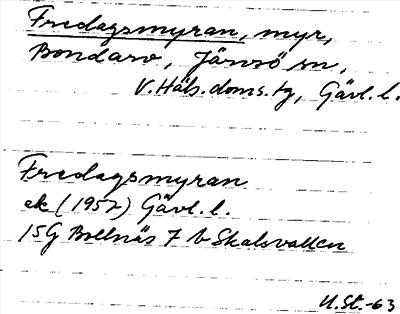 Fredagsmyran, myr,
Bondarv, Järvsö sn,
V. Häls. doms. tg, Gävl. l.
Fredagsmyran
ek (1957) Gävl. l.
15G Bollnäs 7 b Skalsvallen
U. St. -63